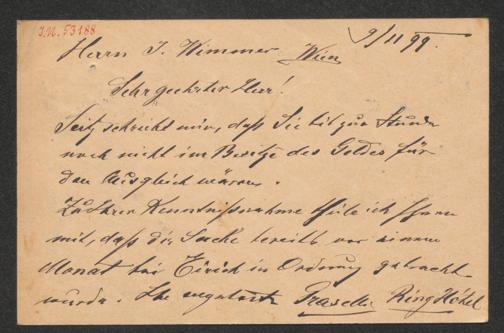 J.N. 53188
9/11 99.
Herrn J. Wimmer Wien
Sehr geehrter Herr!
Seitz schreibt mir, daß Sie bis zur Stunde
noch nicht im Besitze des Geldes für
den Ausgleich wären.
Zu Ihrer Kenntnißnahme theile ich Ihnen
mit, daß die Sache bereits vor einem
Monat bei in Ordnung gebracht
wurde. Ihr Ring Hôtel